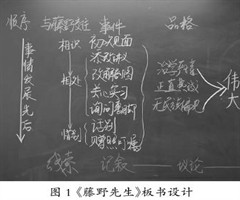 顺序 与藤野交往 事件 品格
事情发展先后
相识
相处
惜别
初次见面
添改讲义
改解剖图
关心实习
询问裹脚
话别
赠照叮嘱
治学严谨
正直真诚
无民族偏见
伟大
线索 记叙 议论
图1《藤野先生》板书设计